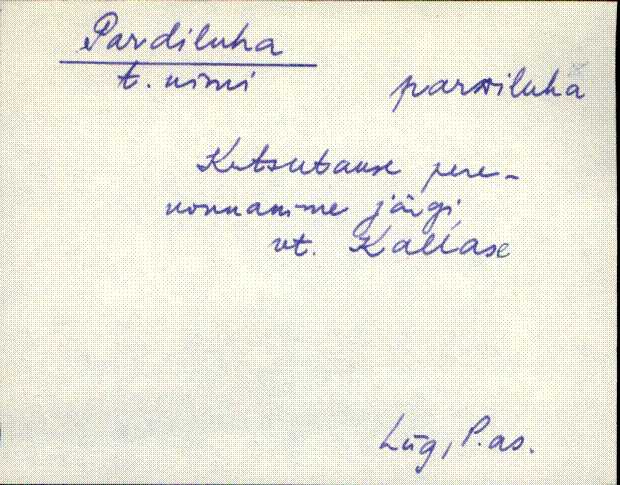 Pardiluha
t. nimi parsiluha
Kutsutakse pere-
konnanime järgi,
vt. Kallase
Lüg, P.as.